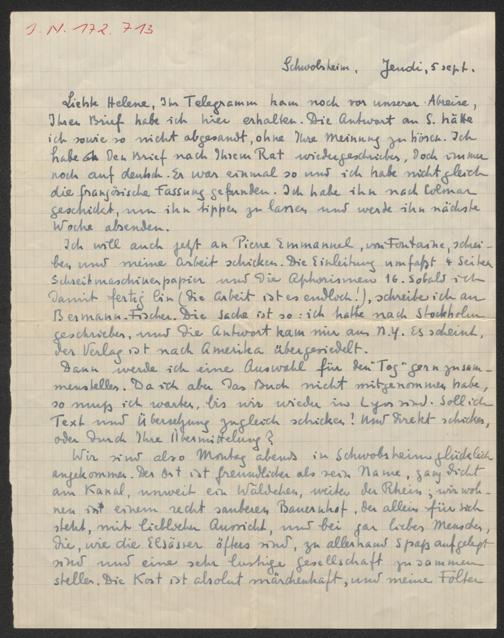 J. N. 172.713
Schwobsheim, Jeudi, 5 sept.
Liebste Helene, Ihr Telegramm kam noch vor unserer Abreise,
Ihren Brief habe ich hier erhalten. Die Antwort an S. hätte
ich sowieso nicht abgesandt, ohne Ihre Meinung zu hören. Ich
habe den Brief nach Ihrem Rat wiedergeschrieben, doch immer
noch auf deutsch. Es war einmal so und ich habe nicht gleich
die französische Fassung gefunden. Ich habe ihn nach Colmar
geschickt, um ihn tippen zu lassen und werde ihn nächste
Woche absenden.
Ich will auch jetzt an Pierre Emmanuel, von Fontaine, schrei-
ben und meine Arbeit schicken. Die Einleitung umfaßt 4 Seiten
Schreitmaschinenpapier und die Aphorismen 16. Sobald ich
damit fertig bin (die Arbeit ist es endlich!), schreibe ich an
Bermann-Fischer. Die Sache ist so: ich hatte nach Stockholm
geschrieben, und die Antwort kam nur aus N.Y. Es scheint,
der Verlag ist nach Amerika übergesiedelt.
Dann werde ich eine Auswahl für den "Tag" gern zusam-
menstellen. Da ich aber das Buch nicht mitgenommen habe,
so muß ich warten, bis wir wieder in Lyon sind. Soll ich
Text und Übersetzung zugleich schicken? Und direkt schicken,
oder durch Ihre Übermittelung?
Wir sind also Montag abends in Schwobsheim glücklich
angekommen. Der Ort ist freundlicher als sein Name, ganz dicht
am Kanal, unweit ein Wäldchen, weiter der Rhein; wir woh-
nen in einem recht sauberen Bauernhof, der allein für sich
steht, mit lieblicher Aussicht, und bei gar lieben Menschen,
die, wie die Elsässer öfters sind, zu allerhand Spaß aufgelegt
sind und eine sehr lustige Gesellschaft zusammen
stellen. Die Kost ist absolut märchenhaft, und meine Eltern